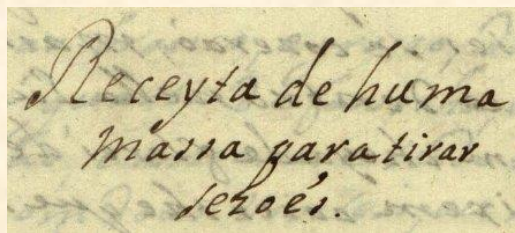 Receyta de huma
massa para tirar
sezoés.